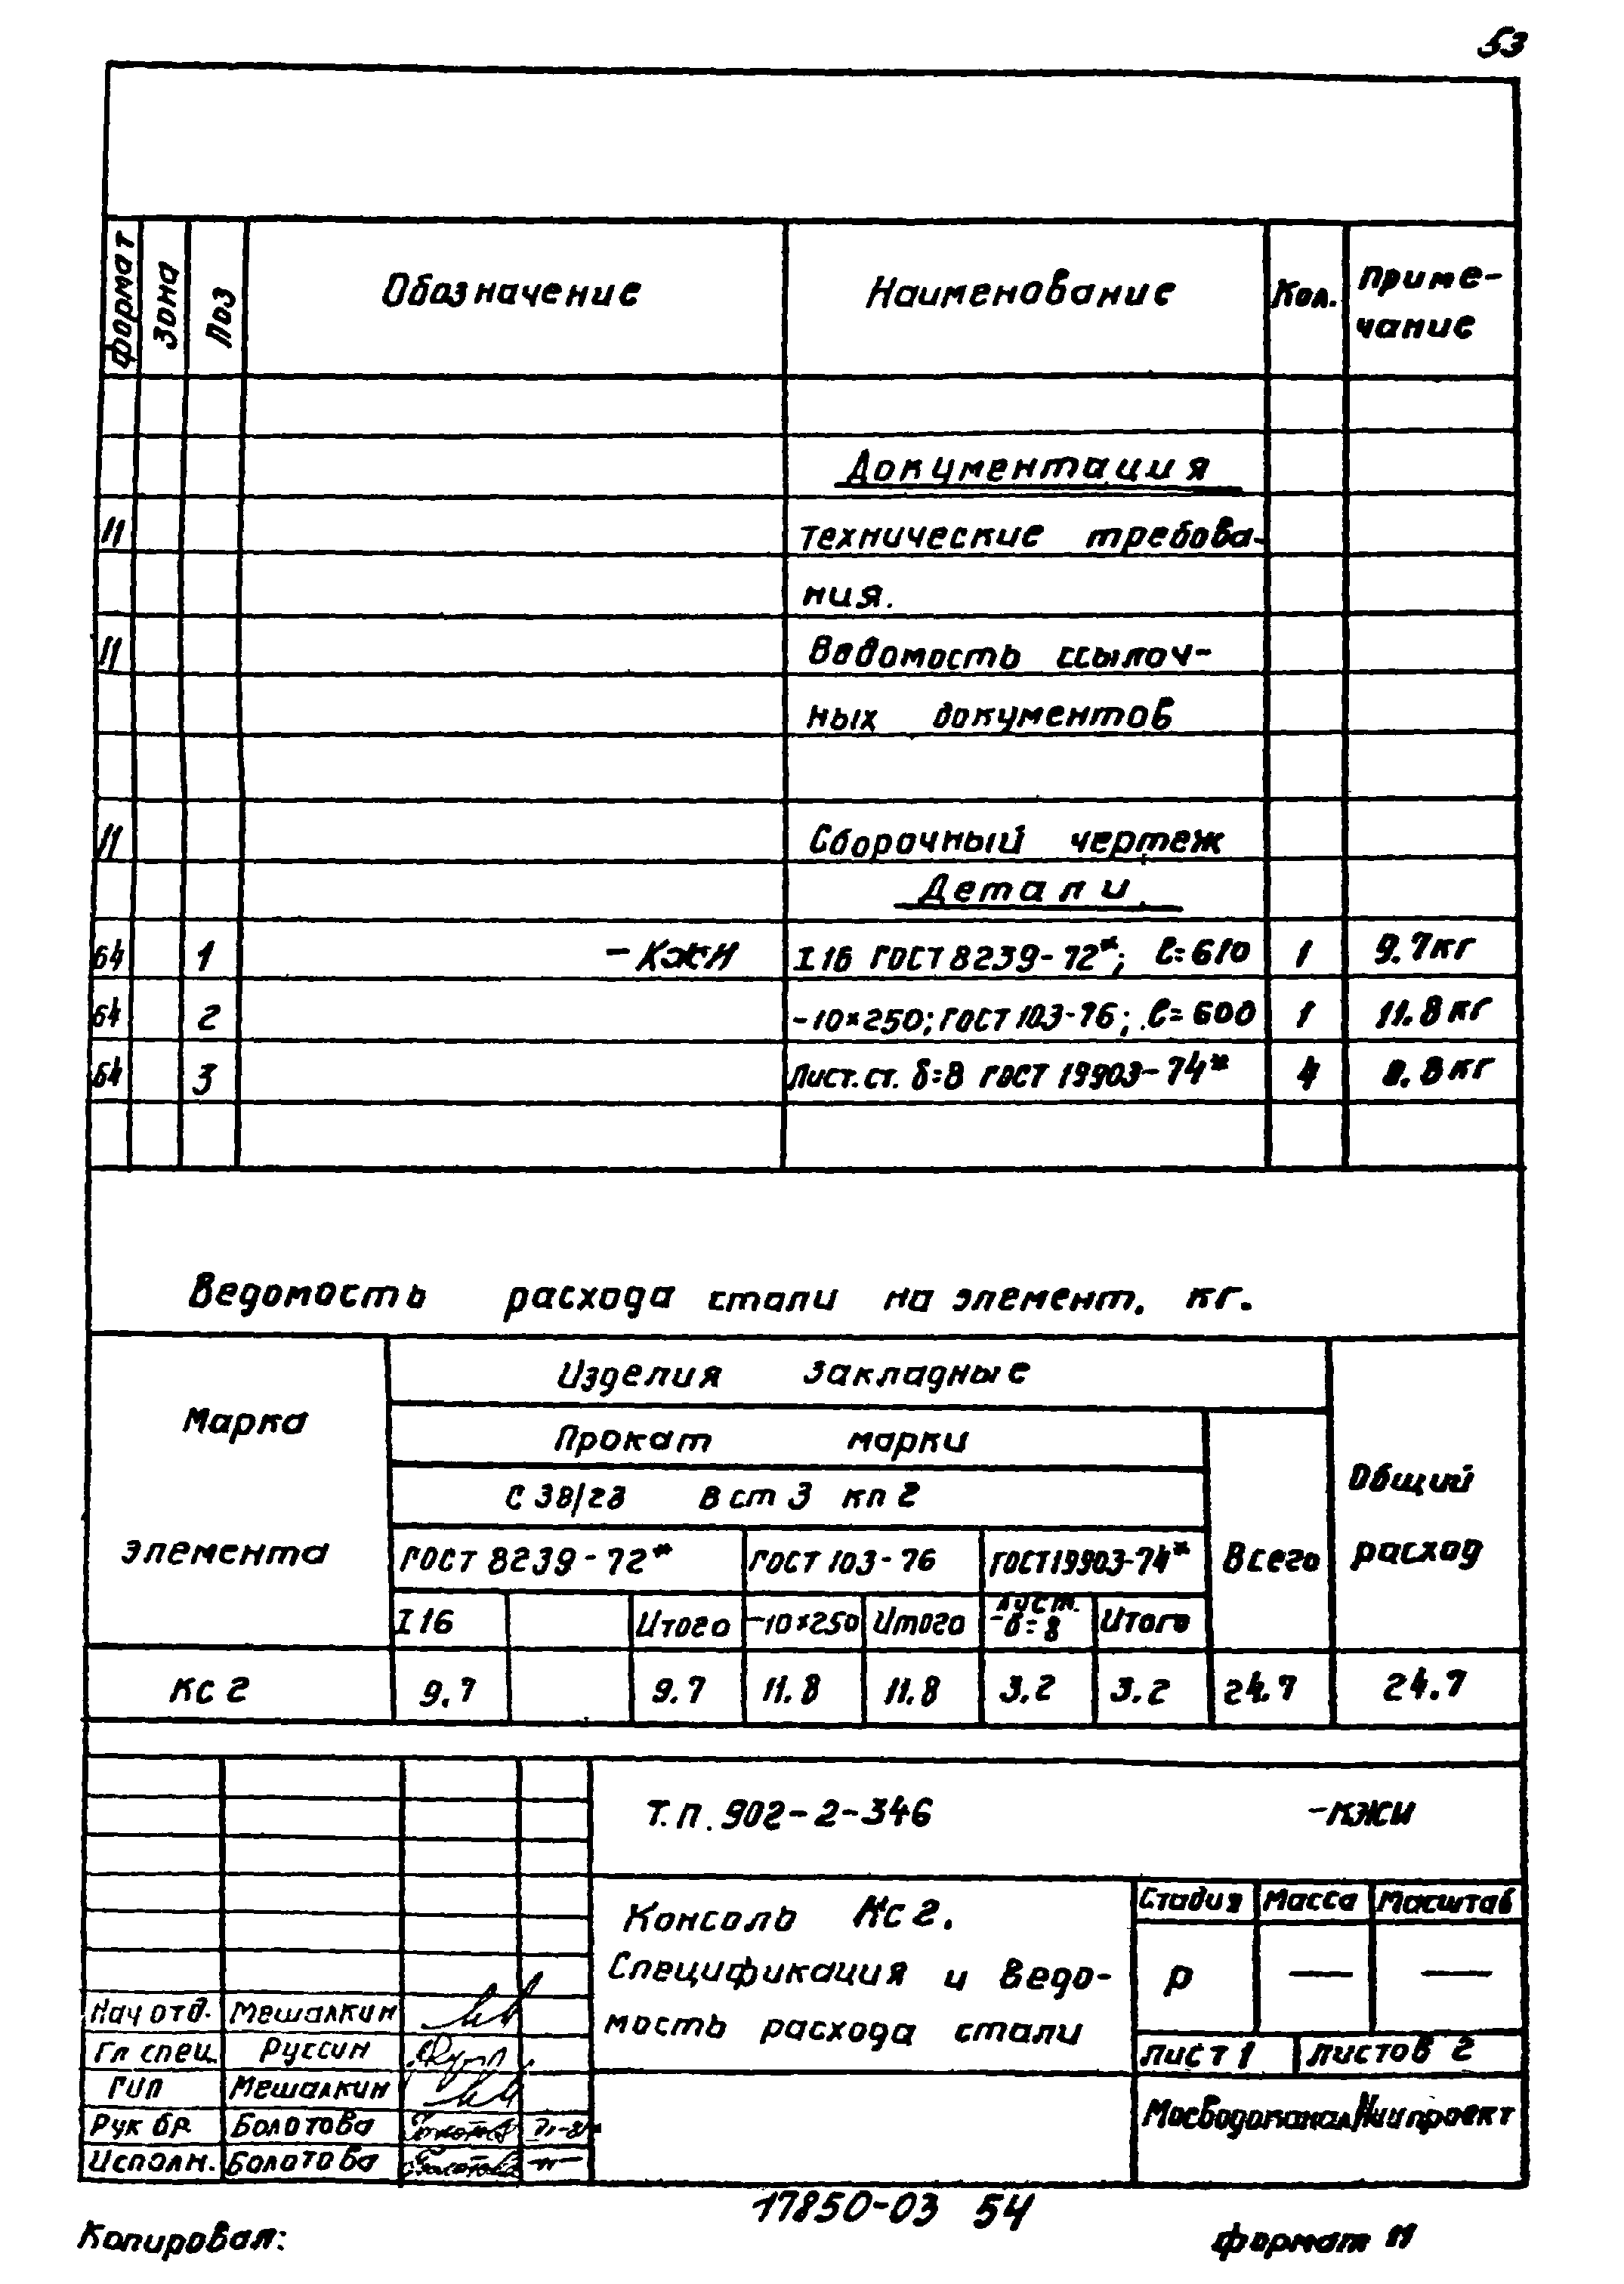 53
формат Зона Поз Обозначение Наименование Кол. Приме-
чание
Документация
11 технические требова-
ния.
11 Ведомость ссылоч-
ных документов
11 Сборочный чертеж
Детали
б4 1 -КЖИ I 16 ГОСТ 8239-72*; ℓ=610 1 9.7кг
б4 2 -10×250; ГОСТ 103-76; ℓ=600 1 11.8кг
б4 3 Лист.ст. δ=8 ГОСТ 19903-74* 4 0.8кг
Ведомость расхода стали на элемент. кг.
Марка
элемента
Изделия закладные
Прокат марки
С 38/23 В ст 3 кп 2
ГОСТ 8239-72* ГОСТ 103-76 ГОСТ 19903-74* Всего
Общий
расход
I 16 Итого -10×250 Итого Лист. -δ=8 Итого
КС 2 9.7 9.7 11.8 11.8 3.2 3.2 24.7 24.7
Т.П. 902-2-346 -КЖИ
Консоль Кс 2.
Спецификация и Ведо-
мость расхода стали
Стадия Масса Масштаб
р — —
лист 1 листов 2
МосводоканалНиипроект
Нач отд. Мешалкин
Гл спец. Руссин
ГИП Мешалкин
Рук бр Болотова
Исполн. Болотова
17850-03 54
Копировал: формат 11